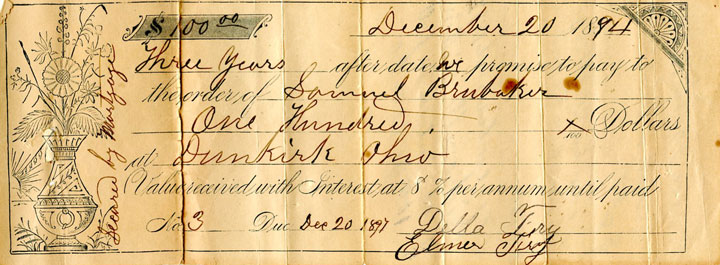 $100 00 December 20 1894
Three Years after date we promise to pay to
the order of Samuel Brubaker
One Hundred x/100 Dollars
at Dunkirk Ohio
Value received with Interest at 8 % per annum until paid
No 3 Due Dec 20 1897 Della Fry
Elmer Fry
Secured by Mortgage